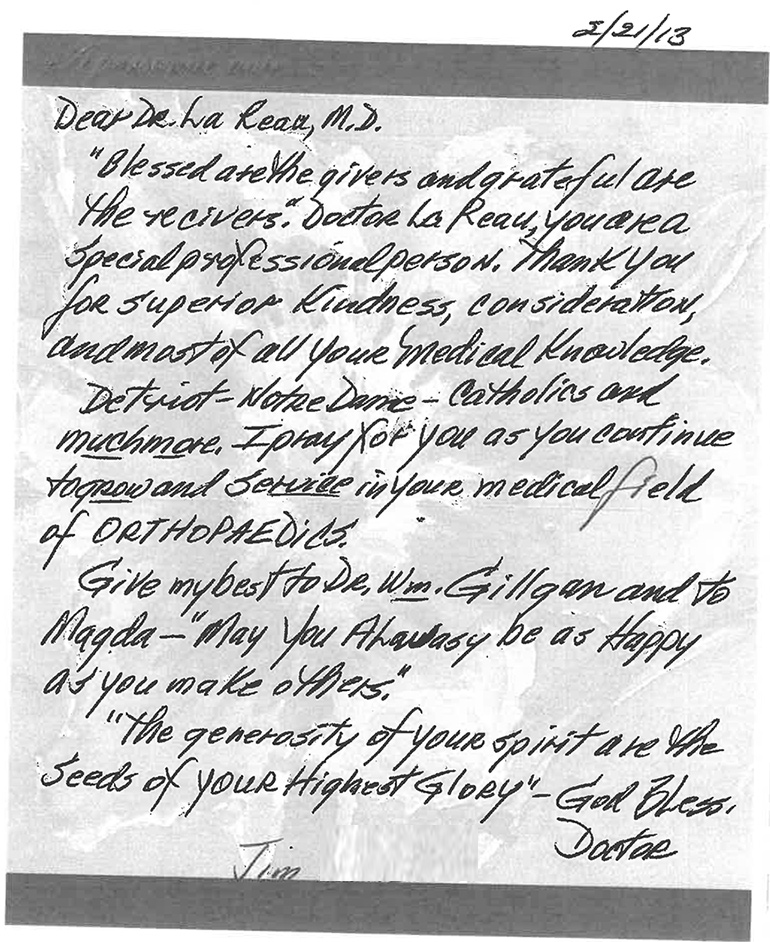 2/21/13
Dear Dr. La Reau, M.D.
"Blessed are the givers and grateful are
the recivers". Doctor La Reau, you are a
special professional person. Thank you
for superior kindness, consideration,
and most of all your medical knowledge.
Detriot - Notre Dame - Catholics and
much more. I pray for you as you continue
to grow and service in your medical field
of ORTHOPAEDICS.
Give my best to Dr. Wm. Gillgan and to
Magda - "May you Alawasy be as Happy
as you make others."
"The generosity of your spirit are the
Seeds of your Highest Glory" - God Bless.
Doctor
Jim